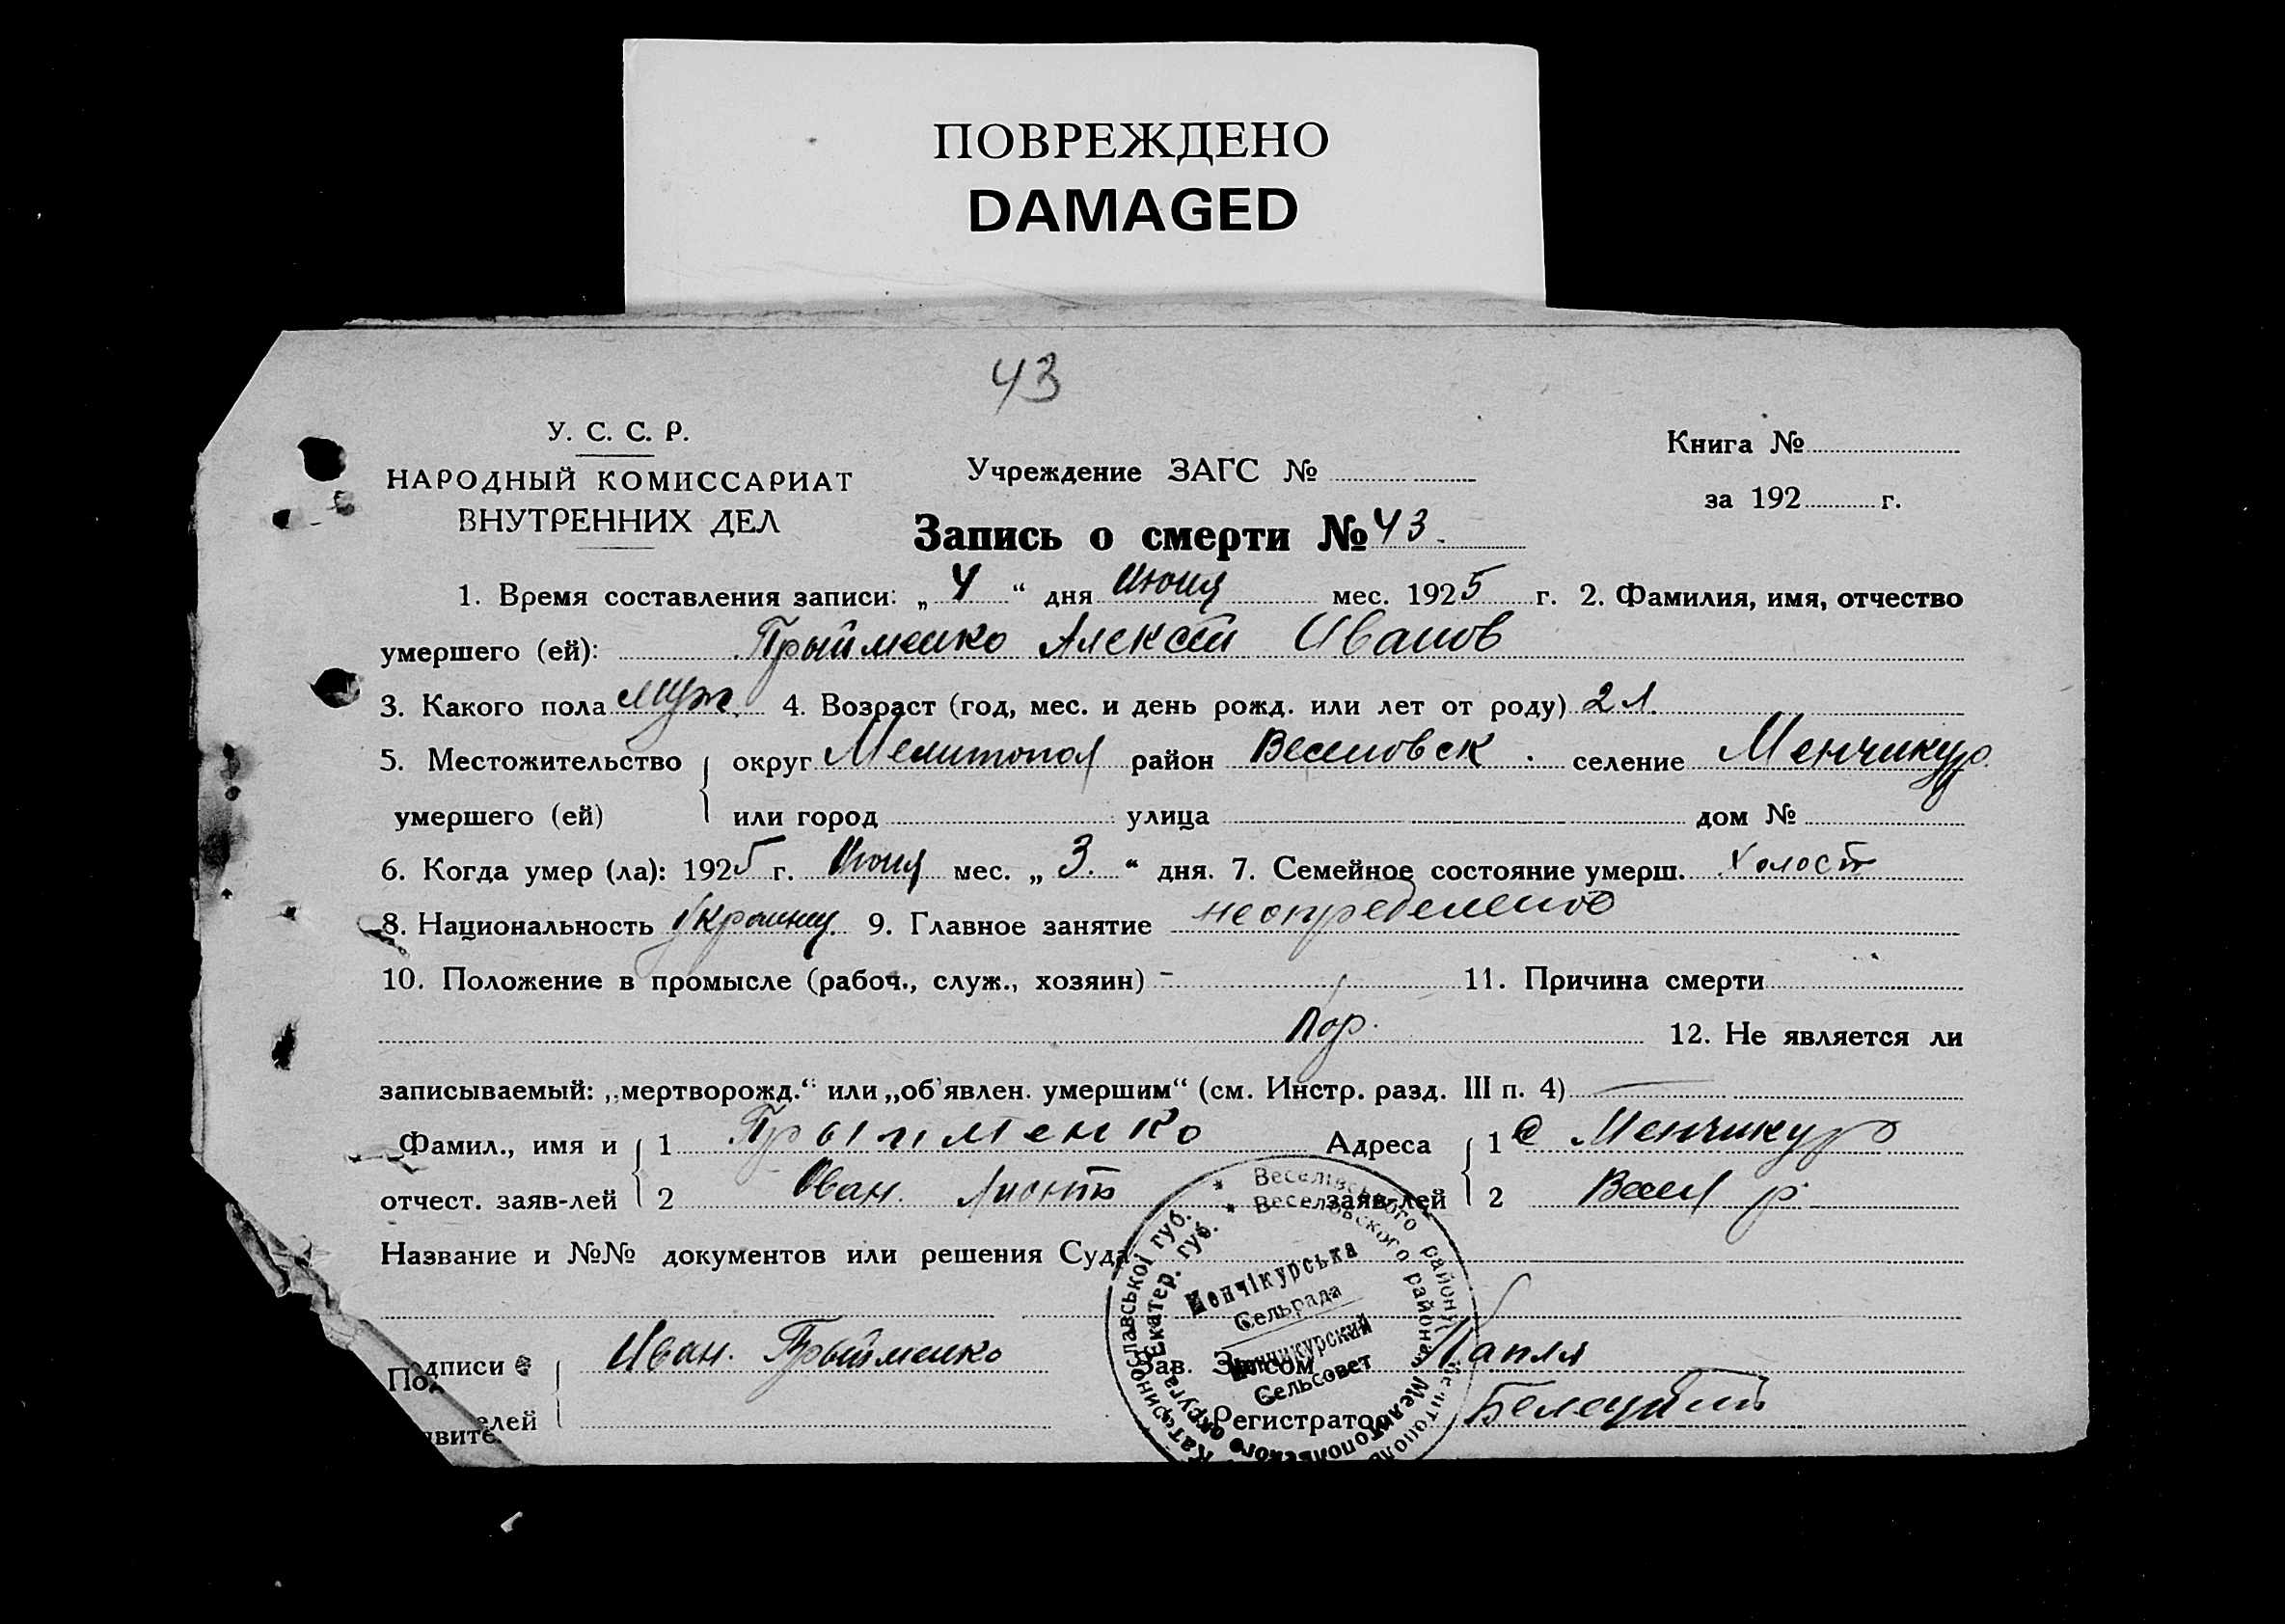 ПОВРЕЖДЕНО
DAMAGED
43
У. С. С. Р.
НАРОДНЫЙ КОМИССАРИАТ
ВНУТРЕННИХ ДЕЛ
Учреждение ЗАГС №
Книга №
за 192 г.
Запись о смерти № 43.
1. Время составления записи: „ 4 “ дня Июня мес. 1925 г. 2. Фамилия, имя, отчество
умершего (ей): Прыйменко Алексей Иванов
3. Какого пола муж. 4. Возраст (год, мес. и день рожд. или лет от роду) 2 л.
5. Местожительство округ Мелитопол район Веселовск. селение Менчикур.
умершего (ей) или город улица дом №
6. Когда умер (ла): 1925 г. Июня мес. „ 3. “ дня. 7. Семейное состояние умерш. Холост
8. Национальность 9. Главное занятие неопределеное
10. Положение в промысле (рабоч., служ., хозяин) - 11. Причина смерти
Кор. 12. Не является ли
записываемый: „мертворожд.“ или „об'явлен. умершим“ (см. Инстр. разд. III п. 4) —
Фамил., имя и 1 Прыйменко Адреса 1 с Менчикур
отчест. заяв-лей 2 Иван. заяв-лей 2 Весел р.
Название и №№ документов или решения Суда
Подписи Иван. Прыйменко Зав. Загсом Цапля
явителей Регистратор Белецкий
* Веселівського району
* Веселовского района Мелитопольского округа Екатер. губ.
Менчікурська
Сельрада
Менчикурский
Сельсовет